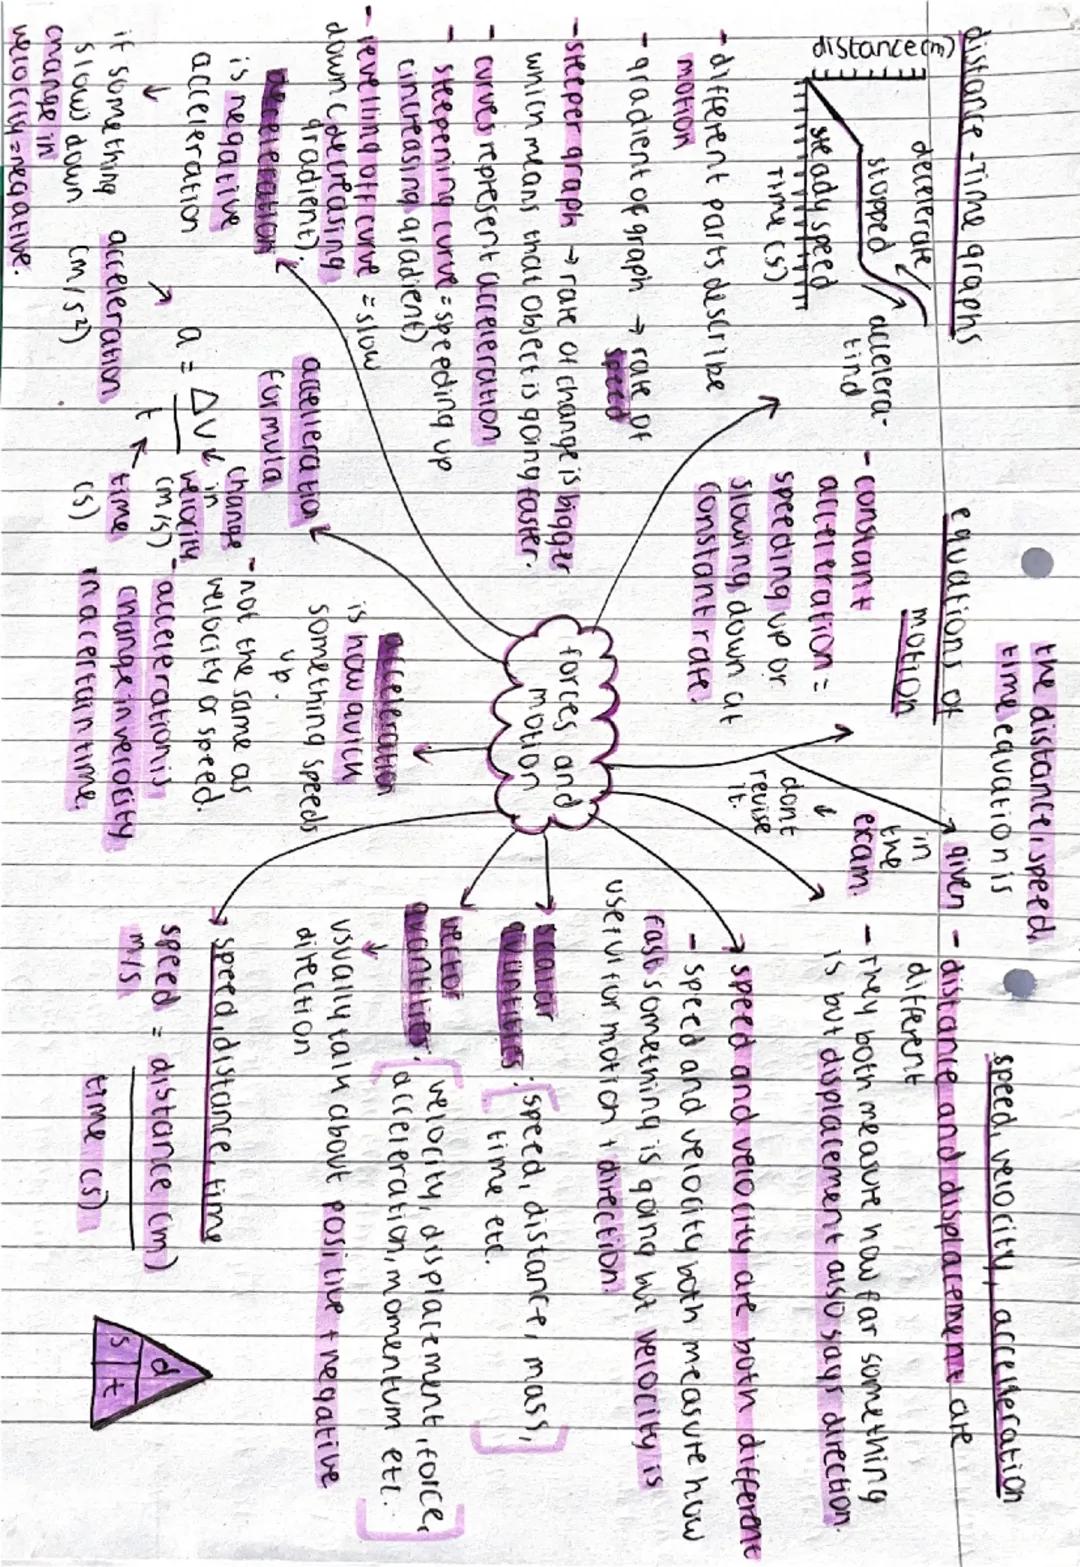 distance-Time graphs
distance(m)
decelerate
stopped
steady speed
accelera-
tind
Time (s)
- different parts describe
motion
- gradient of graph → rate of
speed
- steeper graph → rate of change is bigger
which means that object is going faster.
- curves represent acceleration
- steepening curve = speeding up
(increasing gradient)
- levelling off curve = slow
down (decreasing
gradient).
deceleration
is negative
acceleration
↓
if something
slow down
change in
velocity = negative.
accelleration
formula
a = Δv
t
change
in
velocity
(m/s)
time
(s)
acceleration
(m/s²)
the distance, speed,
time equation is
given
in
the
exam.
equations of
motion
- constant
acceleration =
speeding up or
slowing down at
constant rate.
dont
revise
it.
forces and
motion
acceleration
is how quick
something speeds
up.
- not the same as
velocity or speed.
- acceleration is
change in velocity
in a certain time.
speed, velocity, acceleration
- distance and displacement are
different
- They both measure how far something
is but displacement also says direction.
speed and velocity are both different
- speed and velocity both measure how
fast something is going but velocity is
useful for motion + direction.
scalar
quantities: [speed, distance, mass,
time etc.]
vector
quantities: [velocity, displacement, force,
acceleration, momentum etc.]
↓
usually talk about positive + negative
direction
speed, distance, time
speed = distance (m)
m/s
time (s)
d
s t